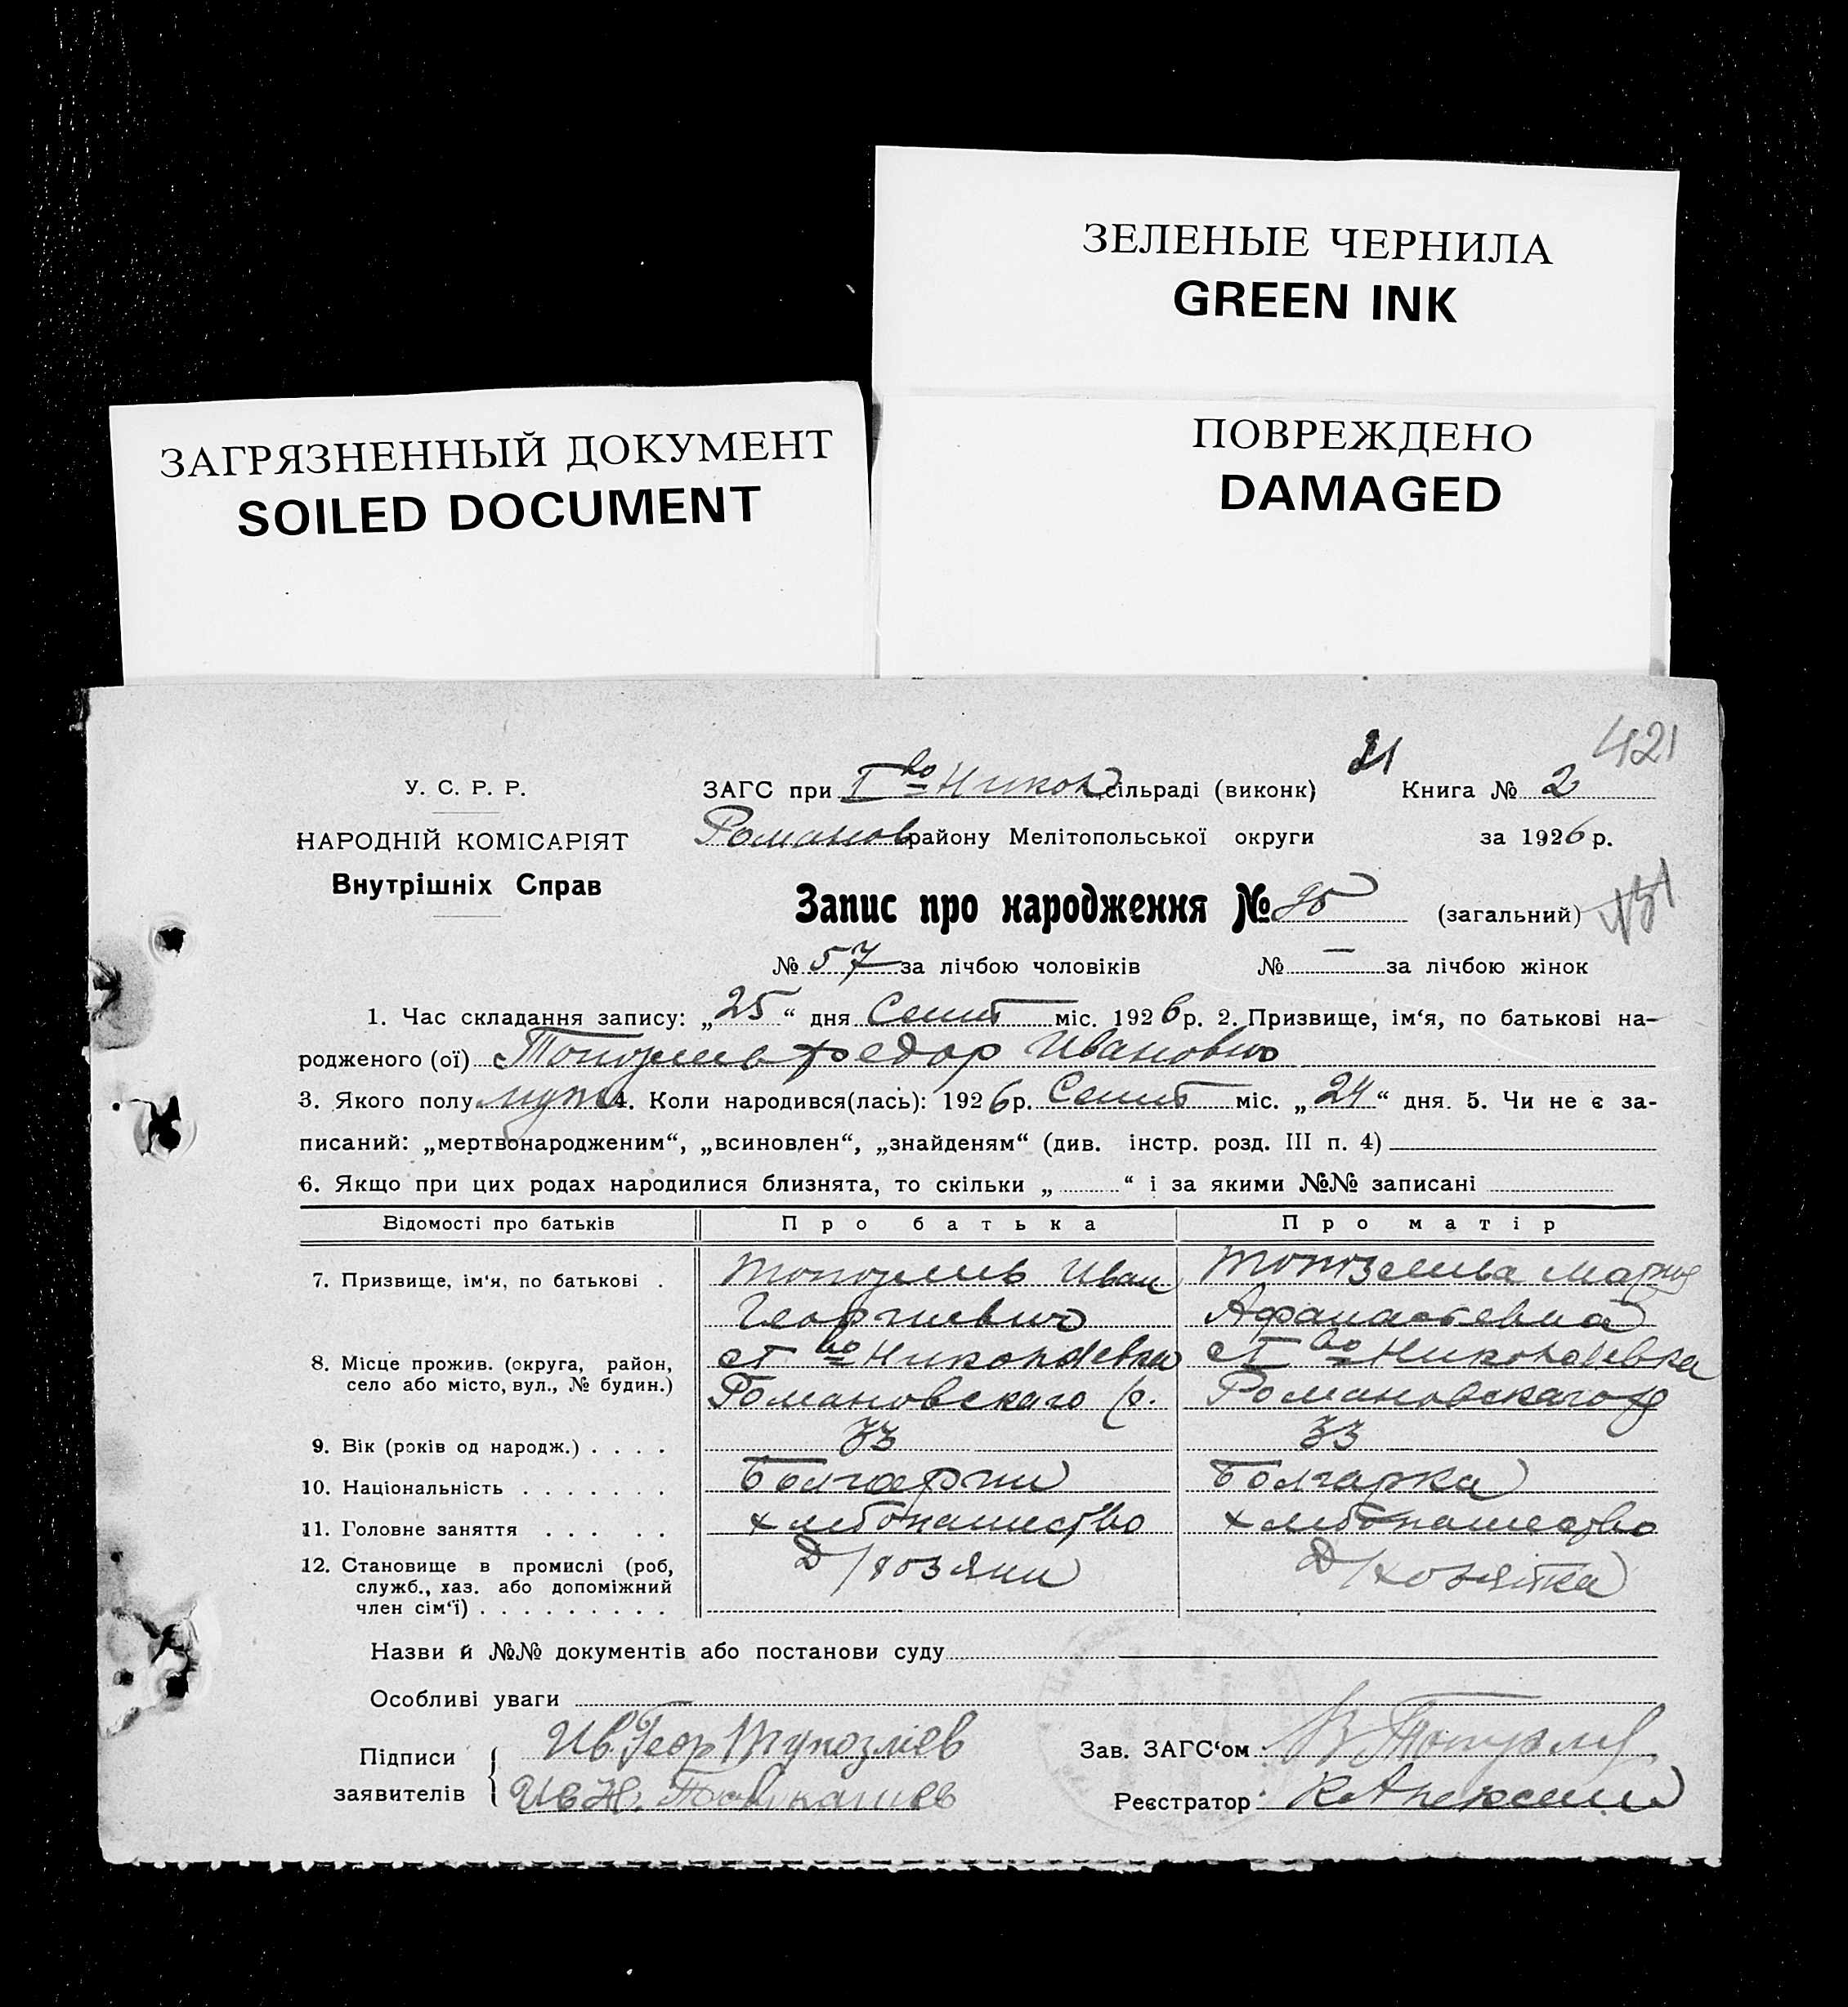 ЗЕЛЕНЫЕ ЧЕРНИЛА
GREEN INK
ЗАГРЯЗНЕННЫЙ ДОКУМЕНТ
SOILED DOCUMENT
ПОВРЕЖДЕНО
DAMAGED
421
21
У. С. Р. Р.
НАРОДНІЙ КОМІСАРІЯТ
Внутрішніх Справ
ЗАГС при І во Никол сільраді (виконк) Книга № 2
Романов району Мелітопольської округи за 1926 р.
Запис про народження № 95 (загальний)
№ 57 за лічбою чоловіків № — за лічбою жінок
1. Час складання запису: „25“ дня Сент міс. 1926 р. 2. Призвище, ім‘я, по батькові на-
родженого (ої) Федор Иванович
3. Якого полу муж 4. Коли народився(лась): 1926 р. Сент міс. „24“ дня. 5. Чи не є за-
писаний: „мертвонародженим“, „всиновлен“, „знайденям“ (див. інстр. розд. III п. 4)
6. Якщо при цих родах народилися близнята, то скільки „ “ і за якими №№ записані
Відомості про батьків Про батька Про матір
7. Призвище, ім‘я, по батькові . Иван Мария
Георгиевич Афанасьевна
8. Місце прожив. (округа, район, во Николаевка во Николаевка
село або місто, вул., № будин.) Романовского р. Романовского р
9. Вік (років од народж.) . . . . 33 33
10. Національність . . . . . . . Болгарин Болгарка
11. Головне заняття . . . . . хлебопашество хлебопашество
12. Становище в промислі (роб, Д/хозяин Д/хозяйка
служб., хаз. або допоміжний
член сім‘ї) . . . . . . . . .
Назви й №№ документів або постанови суду
Особливі уваги
Підписи Ив. Геор
заявителів Ив Н.
Зав. ЗАГС‘ом В
Реєстратор К